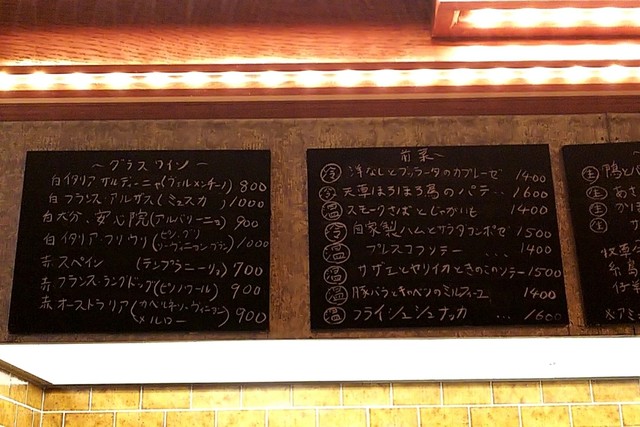 〜グラスワイン〜
白イタリア サルディーニャ(ヴェルメンチーノ) 800
白フランス・アルザス(ミュスカ) 1000
白大分、安心院(アルバリーニョ) 900
白イタリア・フリウリ(ピノ・グリ ソーヴィニヨンブラン) 1000
赤スペイン (テンプラニーリョ) 700
赤フランス・ラングドック(ピノノワール) 900
赤オーストラリア(カベルネ・ソーヴィニヨン メルロー) 900
前菜〜
冷 洋なしとブッラータのカプレーゼ 1400
冷 天草ほろほろ鳥のパテ… 1600
温 スモークさばとじゃがいも 1400
冷 自家製ハムとサラダコンポゼ 1500
温 プレスコフソテー … 1400
温 サザエとヤリイカときのこソテー 1500
温 豚バラとキャベツのミルフィーユ 1400
温 フライシュシュナッカ … 1600
生 鴨とバ
生 あさ
生
生
牧草
糸島
仔羊